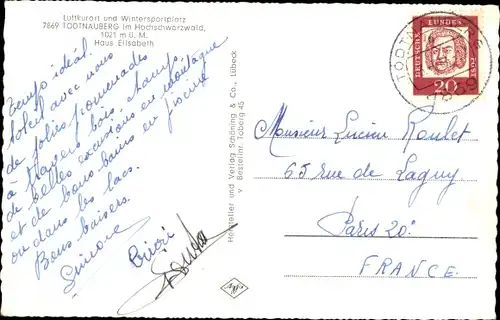 Luftkurort und Wintersportplatz
7869 TODTNAUBERG im Hochschwarzwald,
1021 m ü. M.
Haus Elisabeth
Temps idéal.
Soleil avec nous
de jolies promenades
à travers bois, champs,
de belles excursions en montagne
et de bons bains en piscine
ou dans les lacs.
Bons baisers.
Simone
Hersteller und Verlag Schöning & Co., Lübeck
v Bestellnr. Toberg 45
DEUTSCHE BUNDESPOST
20
7869
Monsieur Lucien Roulet
65 rue de Lagny
Paris 20e
FRANCE